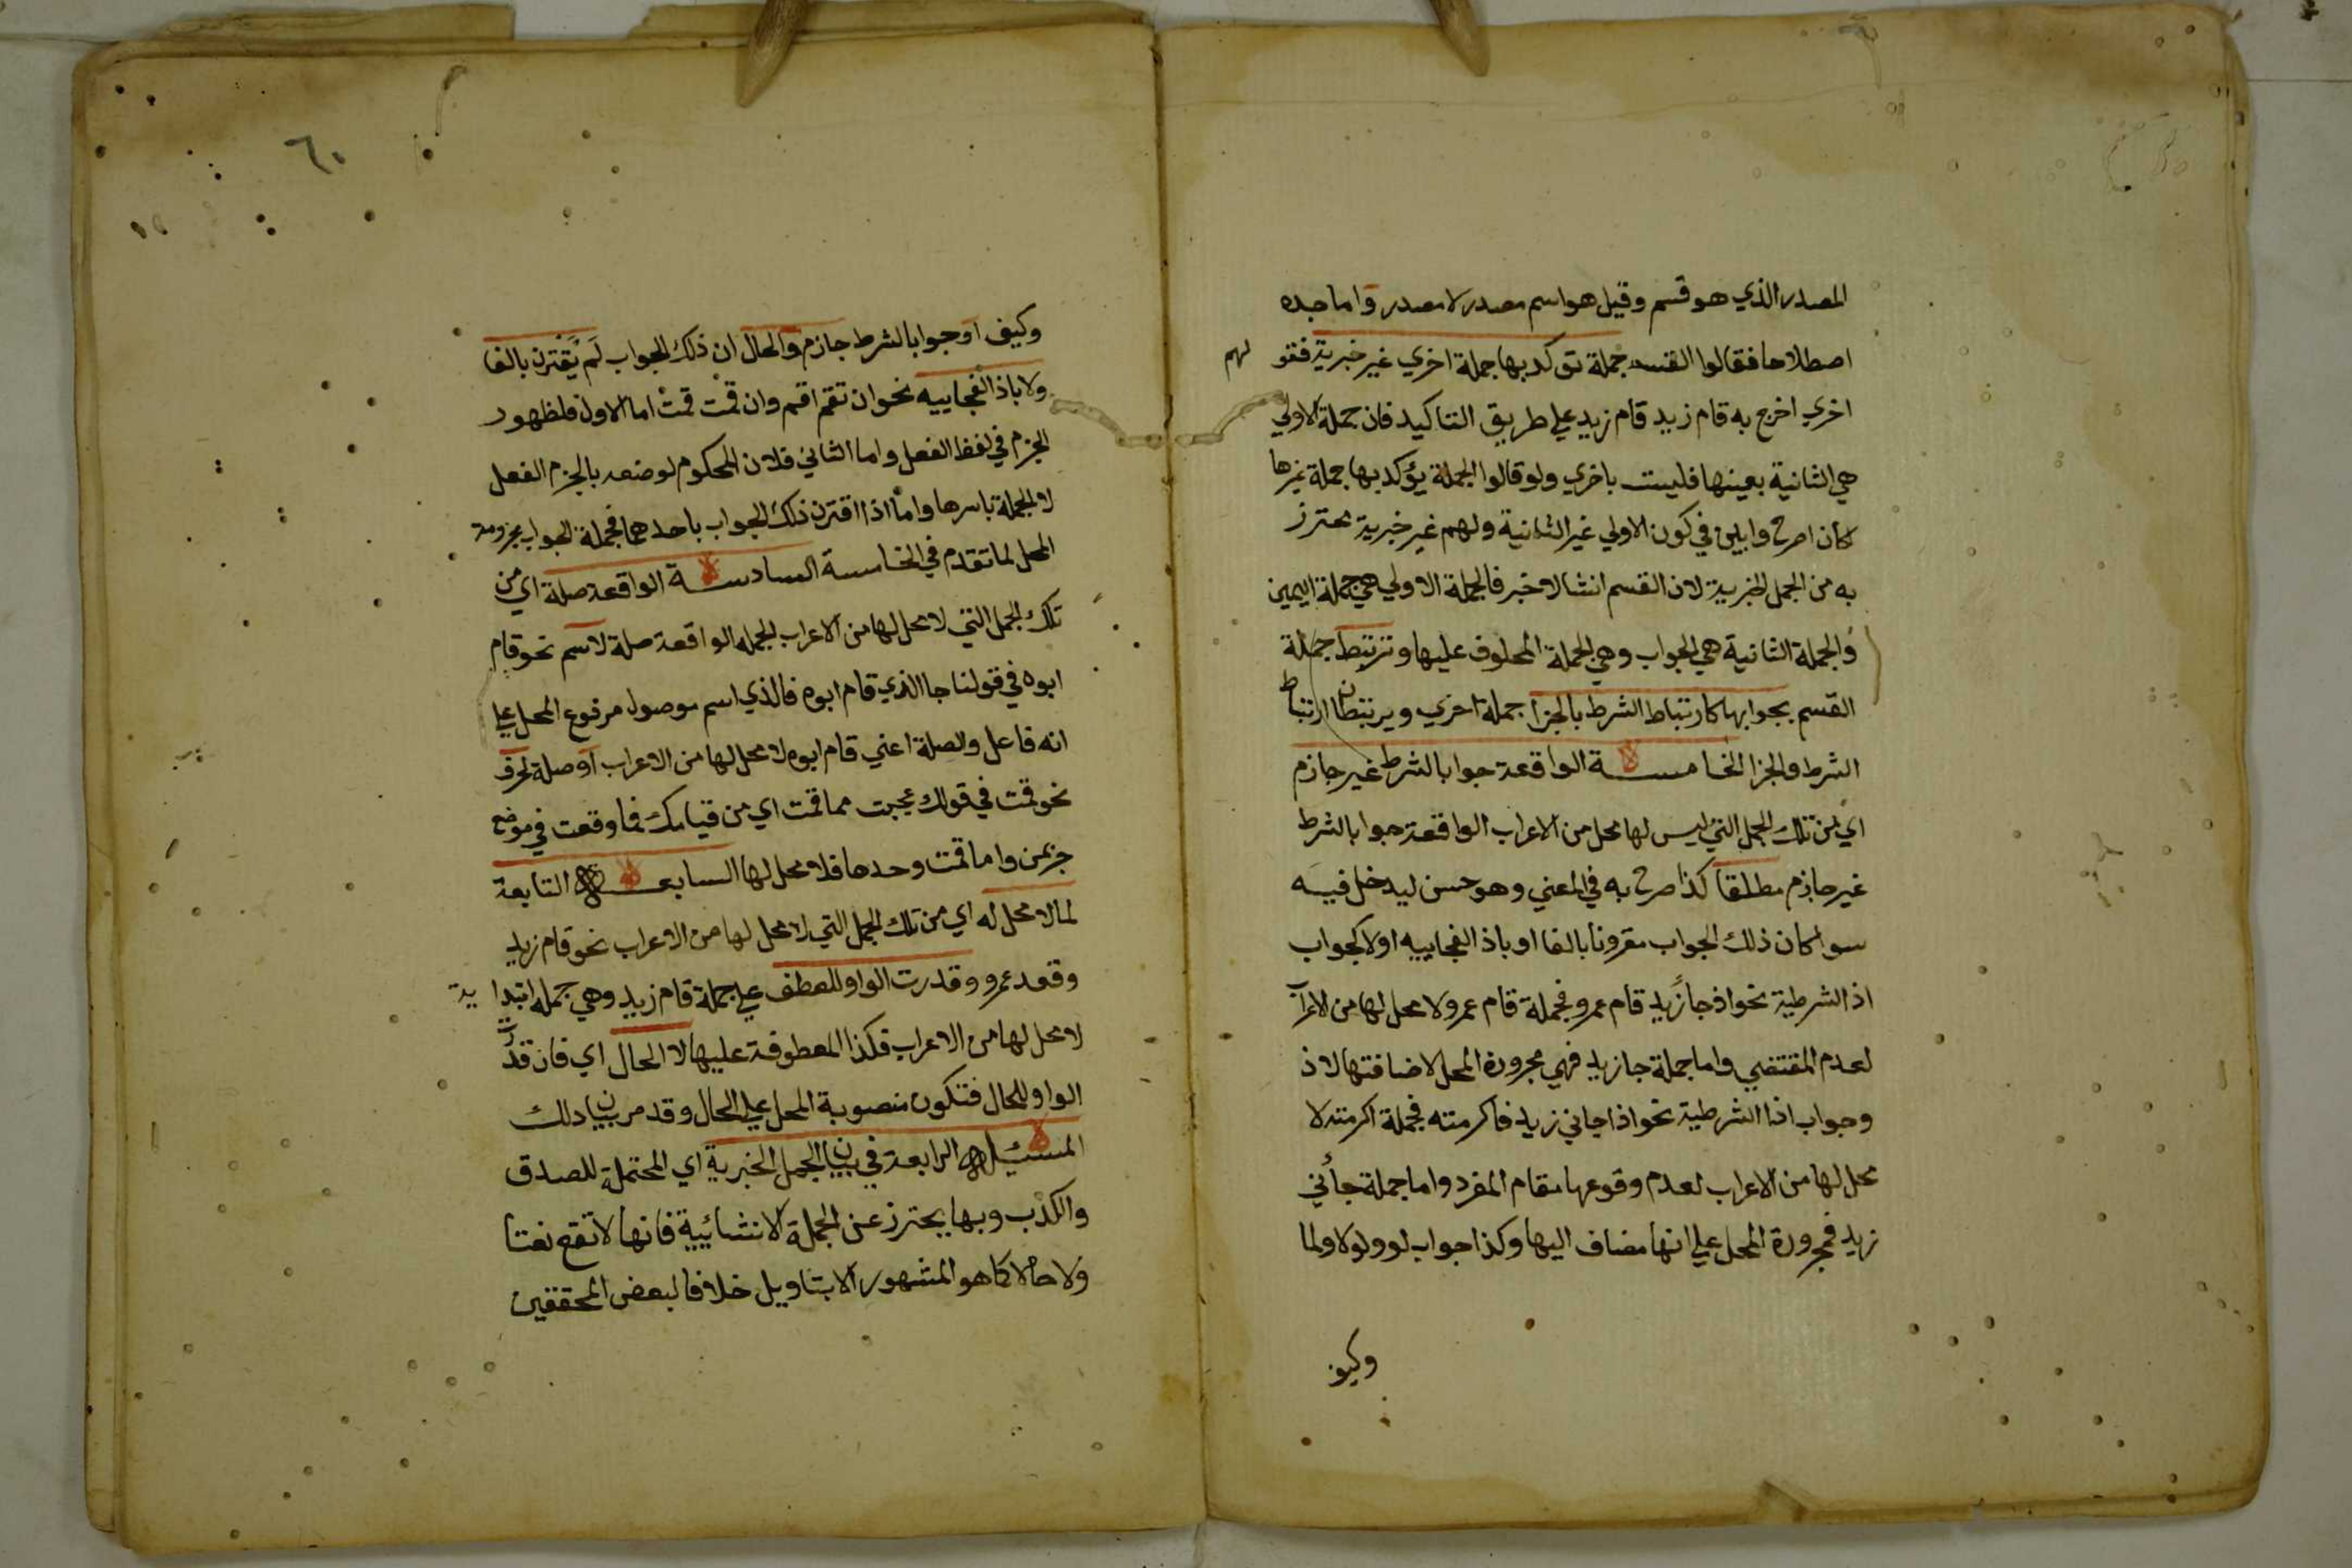 المصدر الذي هو قسم وقيل هو اسم مصدر لا مصدر واما حده
اصطلاحا فقالوا القسم جملة توكد بها جملة اخري غير خبرية فقولهم
اخري اخرج به قام زيد قام زيد علي طريق التاكيد فان جملة الاولي
هي الثانية بعينها فليست باخري ولو قالوا الجملة يؤكد بها جملة غيرها
كان اصرح وابين في كون الاولي غير الثانية ولهم غير خبرية محترز
به من الجمل الخبرية لان القسم انشا لا خبر فالجملة الاولي هي جملة اليمين
والجملة الثانية هي الجواب وهي الجملة المحلوف عليها وترتبط جملة
القسم بجوابها كارتباط الشرط بالجزا جملة اخري ويرتبطان ارتباط
الشرط والجزا الخامسة الواقعة جوابا لشرط غير جازم
اي من تلك الجمل التي ليس لها محل من الاعراب الواقعة جوابا لشرط
غير جازم مطلقا كذا صرح به في المغني وهو حسن ليدخل فيه
سوا كان ذلك الجواب مقرونا بالفا او باذا الفجاييه اولا كجواب
اذ الشرطية نحو اذ جا زيد قام عمرو فجملة قام عمرو لا محل لها من الاعراب
لعدم المقتضي واما جملة جا زيد فهي مجرورة المحل لاضافتها لاذ
وجواب اذا الشرطية نحو اذا جاني زيد فاكرمته فجملة اكرمته لا
محل لها من الاعراب لعدم وقوعها مقام المفرد واما جملة جأني
زيد فمجرورة المحل علي انها مضاف اليها وكذا جواب لو ولولا ولما
وكيف
٦٠
وكيف او جوابا لشرط جازم والحال ان ذلك الجواب لم يقترن بالفا
ولا باذا الفجاييه نحو ان تقم اقم وان قمت قمت اما الاول فلظهور
الجزم في لفظ الفعل واما الثاني فلان المحكوم لوضعه بالجزم الفعل
لا الجملة باسرها واما اذا اقترن ذلك الجواب باحدهما فجملة الجواب مجزومة
المحل لما تقدم في الخامسة السادسة الواقعة صلة اي من
تلك الجمل التي لا محل لها من الاعراب الجمله الواقعة صلة لاسم نحو قام
ابوه في قولنا جا الذي قام ابوه فالذي اسم موصول مرفوع المحل علي
انه فاعل والصلة اعني قام ابوه لا محل لها من الاعراب او صلة لحرف
نحو قمت في قولك عجبت مما قمت اي من قيامك فما وقعت في موضع
جر بمن واما قمت وحدها فلا محل لها السابعة التابعة
لما لا محل له اي من تلك الجمل التي لا محل لها من الاعراب نحو قام زيد
وقعد عمرو وقدرت الواو للعطف علي جملة قام زيد وهي جمله ابتدا ية
لا محل لها من الاعراب فكذا المعطوفة عليها لا الحال اي فان قدرت
الواو للحال فتكون منصوبة المحل علي الحال وقد مر بيان ذلك
المسئيلة الرابعة في بيان الجمل الخبرية اي المحتملة للصدق
والكذب وبها يحترز عن الجملة الانشائيية فانها لا تقع نعتا
ولا حالا كما هو المشهور الا بتاويل خلافا لبعض المحققين